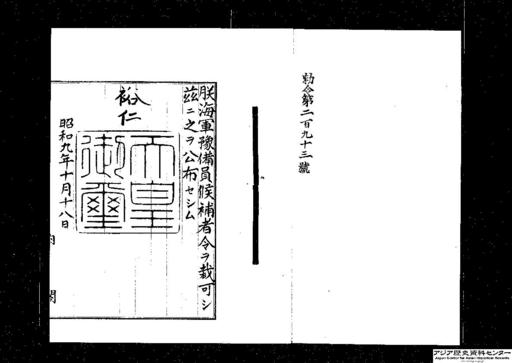 勅令第二百九十三號
朕海軍豫備員候補者令ヲ裁可シ
茲ニ之ヲ公布セシム
裕仁
天皇御璽
昭和九年十月十八日
内閣
アジア歴史資料センター
Japan Center for Asian Historical Records